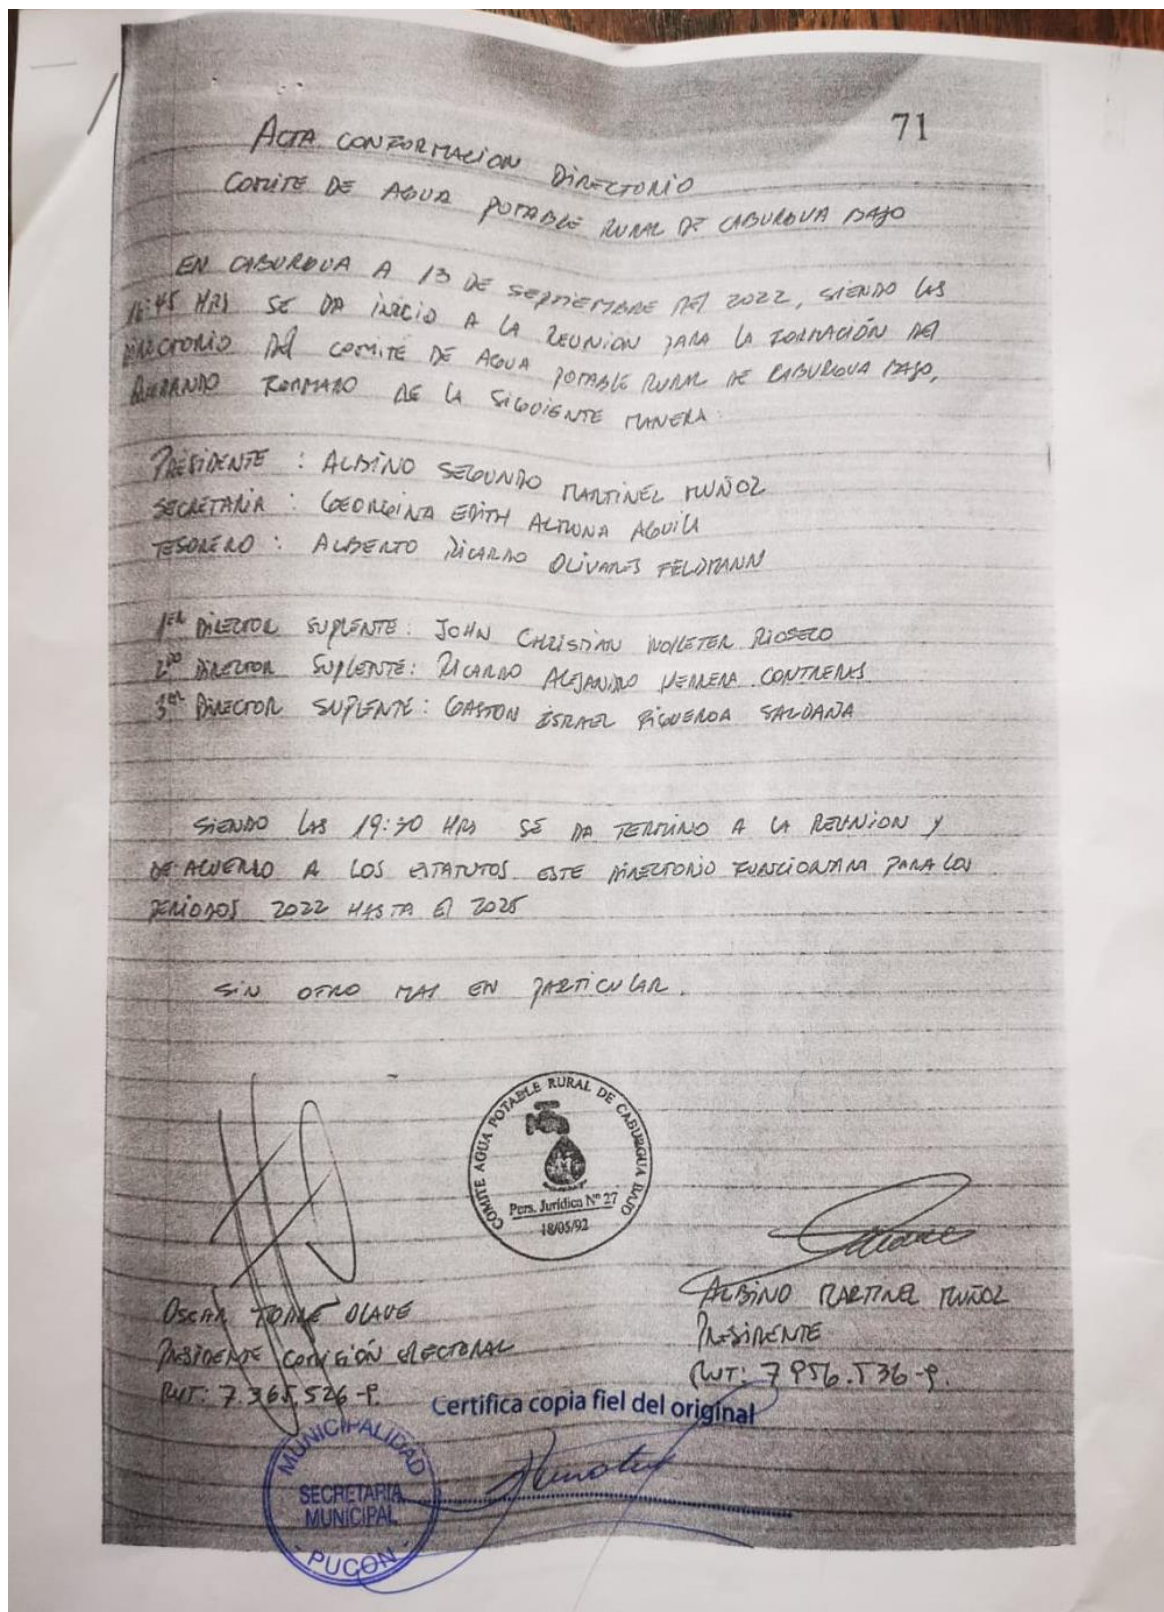 71
ACTA CONFORMACION DIRECTORIO
COMITE DE AGUA POTABLE RURAL DE CABURGUA BAJO
EN CABURGUA A 13 DE SEPTIEMBRE DEL 2022, SIENDO LAS
16:45 HRS SE DA INICIO A LA REUNION PARA LA FORMACIÓN DEL
DIRECTORIO DEL COMITE DE AGUA POTABLE RURAL DE CABURGUA BAJO,
QUEDANDO FORMADO DE LA SIGUIENTE MANERA:
PRESIDENTE : ALBINO SEGUNDO MARTINEZ MUÑOZ
SECRETARIA : GEORGINA EDITH ALTUNA AGUILA
TESORERO : ALBERTO RICARDO OLIVARES FELDMANN
1ER DIRECTOR SUPLENTE: JOHN CHRISTIAN RIOSECO
2DO DIRECTOR SUPLENTE: RICARDO ALEJANDRO HERRERA CONTRERAS
3ER DIRECTOR SUPLENTE: GASTON ISRAEL FIGUEROA SALDAÑA
SIENDO LAS 19:30 HRS SE DA TERMINO A LA REUNION Y
DE ACUERDO A LOS ESTATUTOS ESTE DIRECTORIO FUNCIONARA PARA LOS
PERIODOS 2022 HASTA EL 2025
SIN OTRO MAS EN PARTICULAR.
COMITE AGUA POTABLE RURAL DE CABURGUA BAJO
Pers. Jurídica Nº 27
18/05/92
OSCAR TORRE OLAVE
PRESIDENTE COMISIÓN ELECTORAL
RUT: 7.365.526-9.
ALBINO MARTINEZ MUÑOZ
PRESIDENTE
RUT: 7956.536-9.
Certifica copia fiel del original
MUNICIPALIDAD
SECRETARIA
MUNICIPAL
- PUCON -